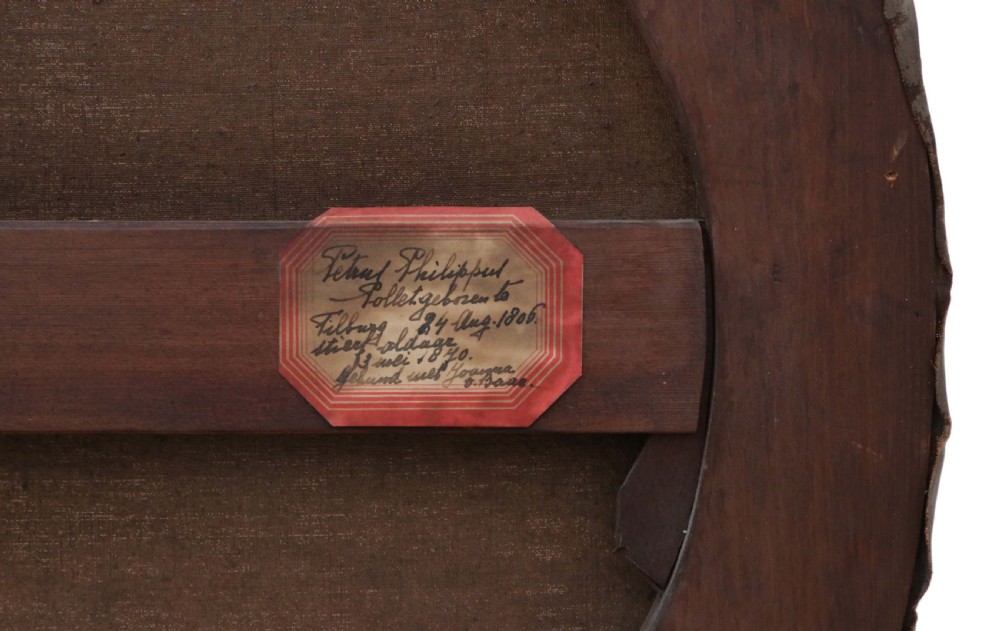 Petrus Philippus
Pollet geboren te
Tilburg 24 Aug. 1806.
stierf aldaar
13 mei 1870.
Gehuwd met Joanna
v. Baar.